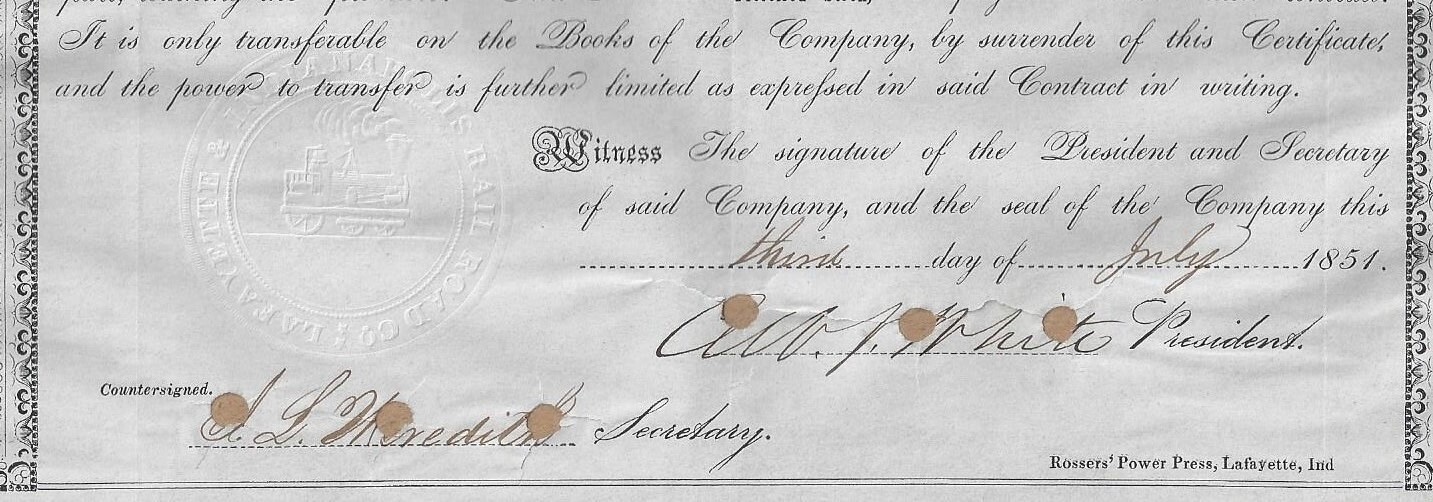 It is only transferable on the Books of the Company, by surrender of this Certificate,
and the power to transfer is further limited as expressed in said Contract in writing.
Witness The signature of the President and Secretary
of said Company, and the seal of the Company this
third day of July 1851.
Alb. S. White President.
LAFAYETTE & INDIANAPOLIS RAIL ROAD Co.
Countersigned.
Meredith Secretary.
Rossers' Power Press, Lafayette, Ind